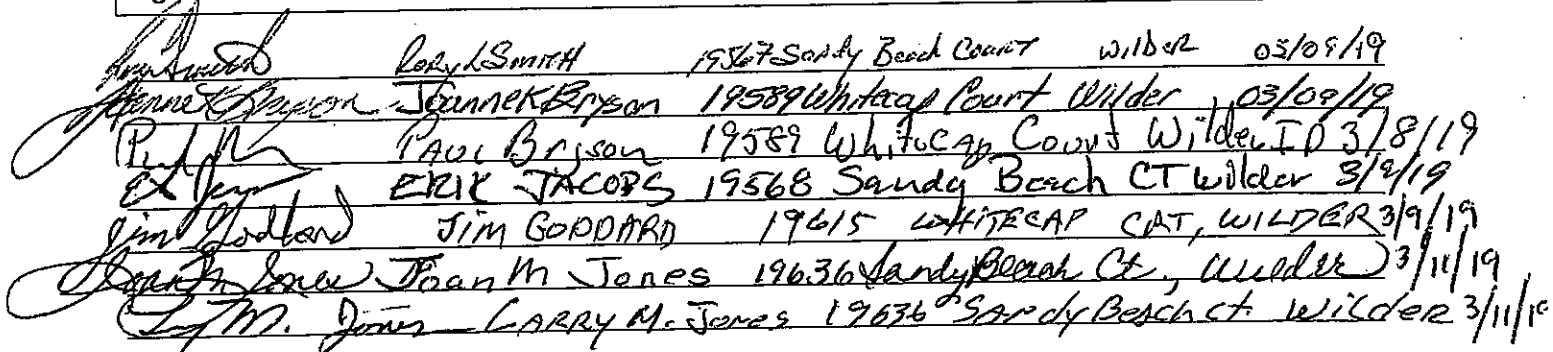 Rory L Smith Rory L Smith 19567 Sandy Beach Court Wilder 03/09/19
Joanne K Bryson Joanne K Bryson 19589 Whitecap Court Wilder, 03/09/19
Paul Bryson 19589 Whitecap Court Wilder ID 3/8/19
ERIK JACOBS 19568 Sandy Beach CT Wilder 3/9/19
Jim Goddard JIM GODDARD 19615 WHITECAP CRT, WILDER 3/9/19
Joan M Jones Joan M Jones 19636 Sandy Beach Ct., Wilder 3/11/19
M. Jones LARRY M. Jones 19636 SAndy Beach ct. Wilder 3/11/19